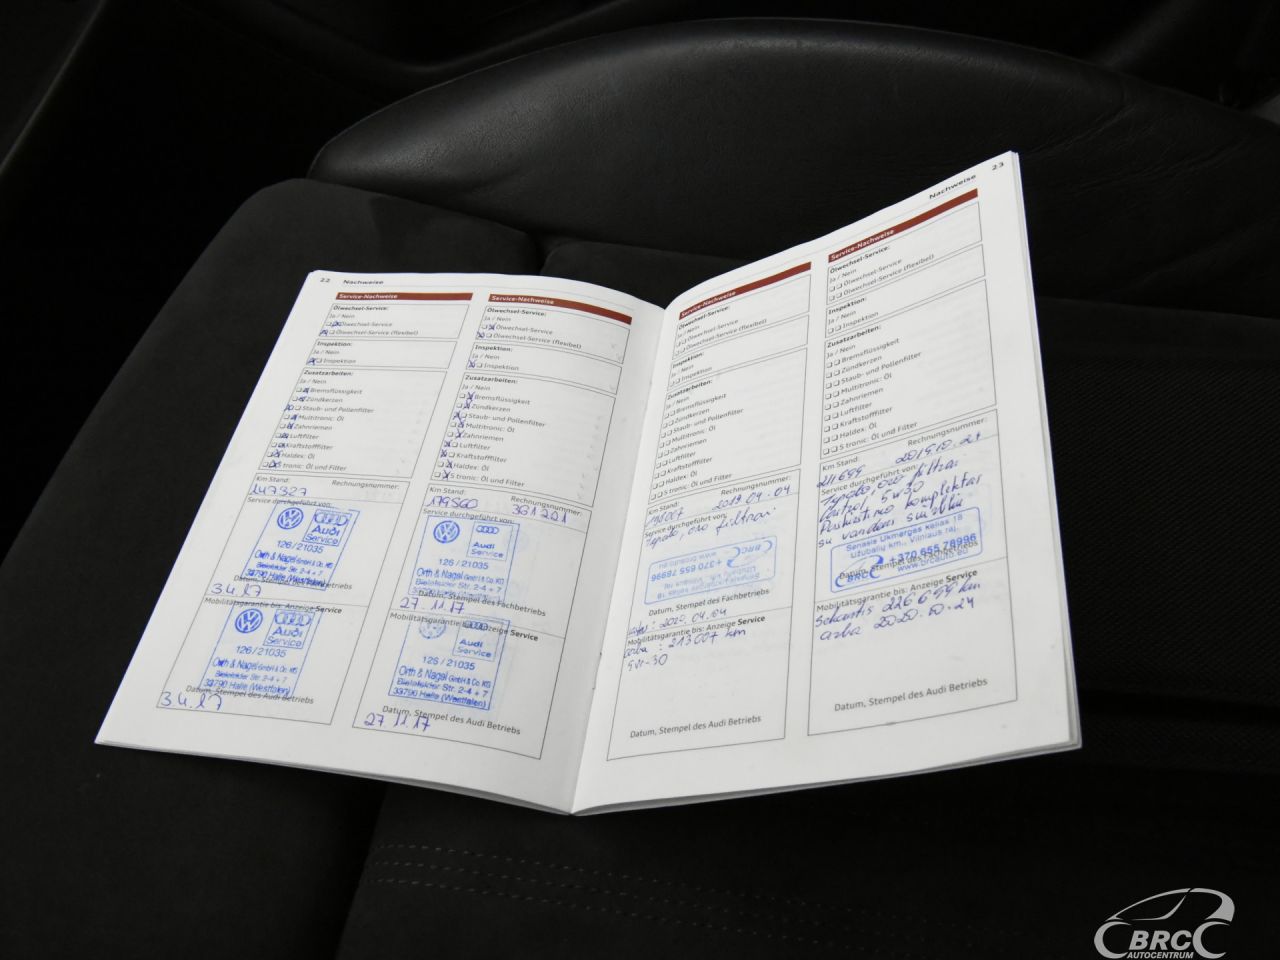 22 Nachweise
Service-Nachweise
Ölwechsel-Service:
Ja / Nein
Ölwechsel-Service
Ölwechsel-Service (flexibel)
Inspektion:
Ja / Nein
Inspektion
Zusatzarbeiten:
Ja / Nein
Bremsflüssigkeit
Zündkerzen
Staub- und Pollenfilter
Multitronic: Öl
Zahnriemen
Luftfilter
Kraftstofffilter
Haldex: Öl
S tronic: Öl und Filter
Km Stand: Rechnungsnummer:
147327
Service durchgeführt von:
Audi
Service
126/21035
Orth & Nagel GmbH & Co. KG
Bielefelder Str. 2-4 + 7
33790 Halle (Westfalen)
Datum, Stempel des Fachbetriebs
3.4.17
Mobilitätsgarantie bis: Anzeige Service
Audi
Service
126/21035
Orth & Nagel GmbH & Co. KG
Bielefelder Str. 2-4 + 7
33790 Halle (Westfalen)
Datum, Stempel des Audi Betriebs
3.4.17
Service-Nachweise
Ölwechsel-Service:
Ja / Nein
Ölwechsel-Service
Ölwechsel-Service (flexibel)
Inspektion:
Ja / Nein
Inspektion
Zusatzarbeiten:
Ja / Nein
Bremsflüssigkeit
Zündkerzen
Staub- und Pollenfilter
Multitronic: Öl
Zahnriemen
Luftfilter
Kraftstofffilter
Haldex: Öl
S tronic: Öl und Filter
Km Stand: Rechnungsnummer:
179560 361201
Service durchgeführt von:
Audi
Service
126/21035
Orth & Nagel GmbH & Co. KG
Bielefelder Str. 2-4 + 7
Datum, Stempel des Fachbetriebs
27.11.17
Mobilitätsgarantie bis: Anzeige Service
Audi
Service
126/21035
Orth & Nagel GmbH & Co. KG
Bielefelder Str. 2-4 + 7
33790 Halle (Westfalen)
Datum, Stempel des Audi Betriebs
27.11.17
Service-Nachweise
Ölwechsel-Service:
Ja / Nein
Ölwechsel-Service
Ölwechsel-Service (flexibel)
Inspektion:
Ja / Nein
Inspektion
Zusatzarbeiten:
Ja / Nein
Bremsflüssigkeit
Zündkerzen
Staub- und Pollenfilter
Multitronic: Öl
Zahnriemen
Luftfilter
Kraftstofffilter
Haldex: Öl
S tronic: Öl und Filter
Km Stand: Rechnungsnummer:
2019.04.04
Service durchgeführt von:
Tepalo, oro filtrai
+370 655 78996
BRC
Datum, Stempel des Fachbetriebs
2020.04.04
Mobilitätsgarantie bis: Anzeige Service
arba : 213007 km
5W-30
Datum, Stempel des Audi Betriebs
Nachweise 23
Service-Nachweise
Ölwechsel-Service:
Ja / Nein
Ölwechsel-Service
Ölwechsel-Service (flexibel)
Inspektion:
Ja / Nein
Inspektion
Zusatzarbeiten:
Ja / Nein
Bremsflüssigkeit
Zündkerzen
Staub- und Pollenfilter
Multitronic: Öl
Zahnriemen
Luftfilter
Kraftstofffilter
Haldex: Öl
S tronic: Öl und Filter
Km Stand: Rechnungsnummer:
211699 2019.10.24
Service durchgeführt von:
Tepalo, oro filtrai
5w30
Paskirstimo komplektas
su vandens siurbliu
Senasis Ukmergės kelias 18
Užubalių km., Vilniaus raj.
+370 655 78996
BRC
Datum, Stempel des Fachbetriebs
Mobilitätsgarantie bis: Anzeige Service
Sekantis 226699 km
arba 2020.10.24
Datum, Stempel des Audi Betriebs
BRC
AUTOCENTRUM